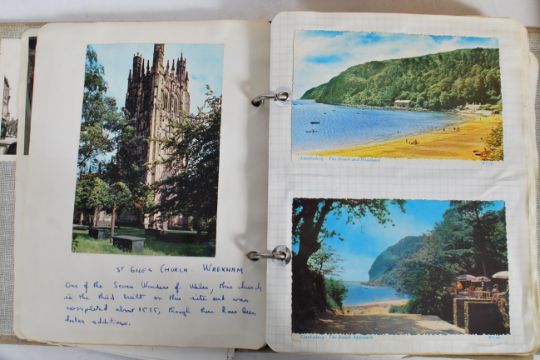 ST GILES CHURCH WREXHAM
One of the Seven Wonders of Wales, this church
is the third built on this site and was
completed about 1515, though there have been
later additions.
The Beach and Headland
The Beach Approach